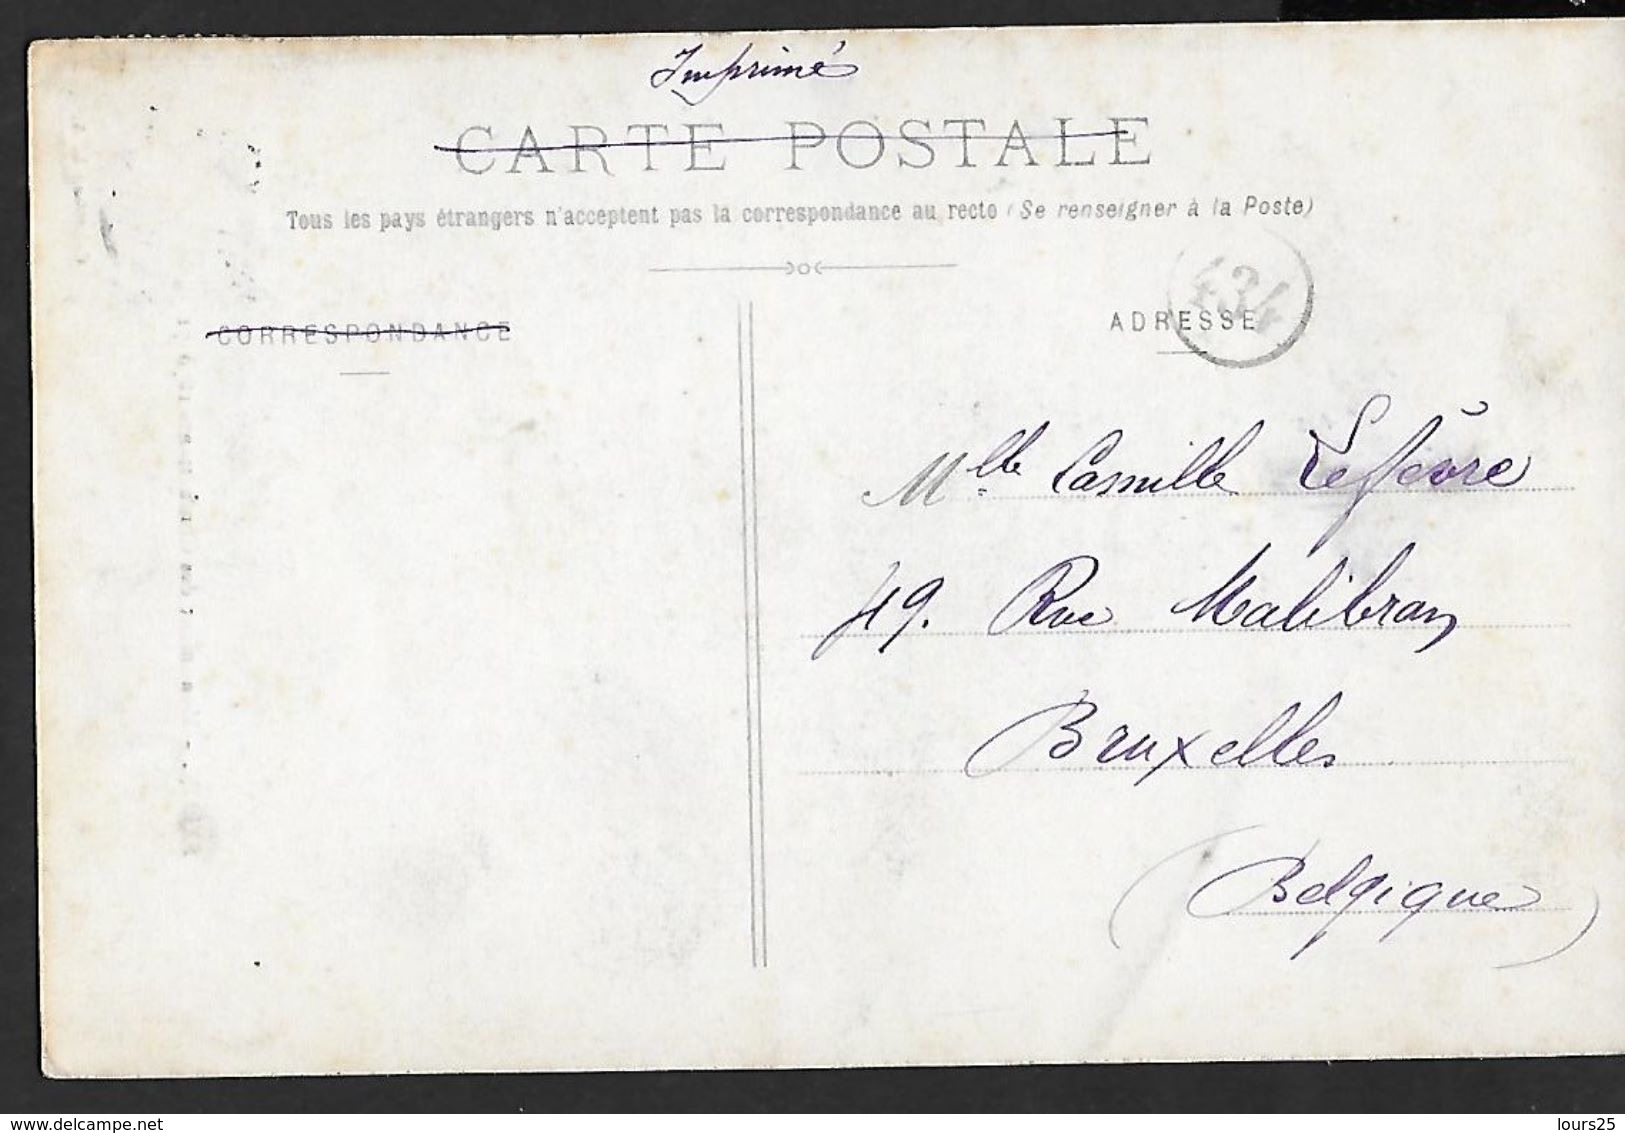 Imprimé
CARTE POSTALE
Tous les pays étrangers n'acceptent pas la correspondance au recto (Se renseigner à la Poste)
434
CORRESPONDANCE
ADRESSE
Mlle Camille Lefèvre
49. Rue Malibran
Bruxelles
(Belgique)
www.delcampe.net
lours25